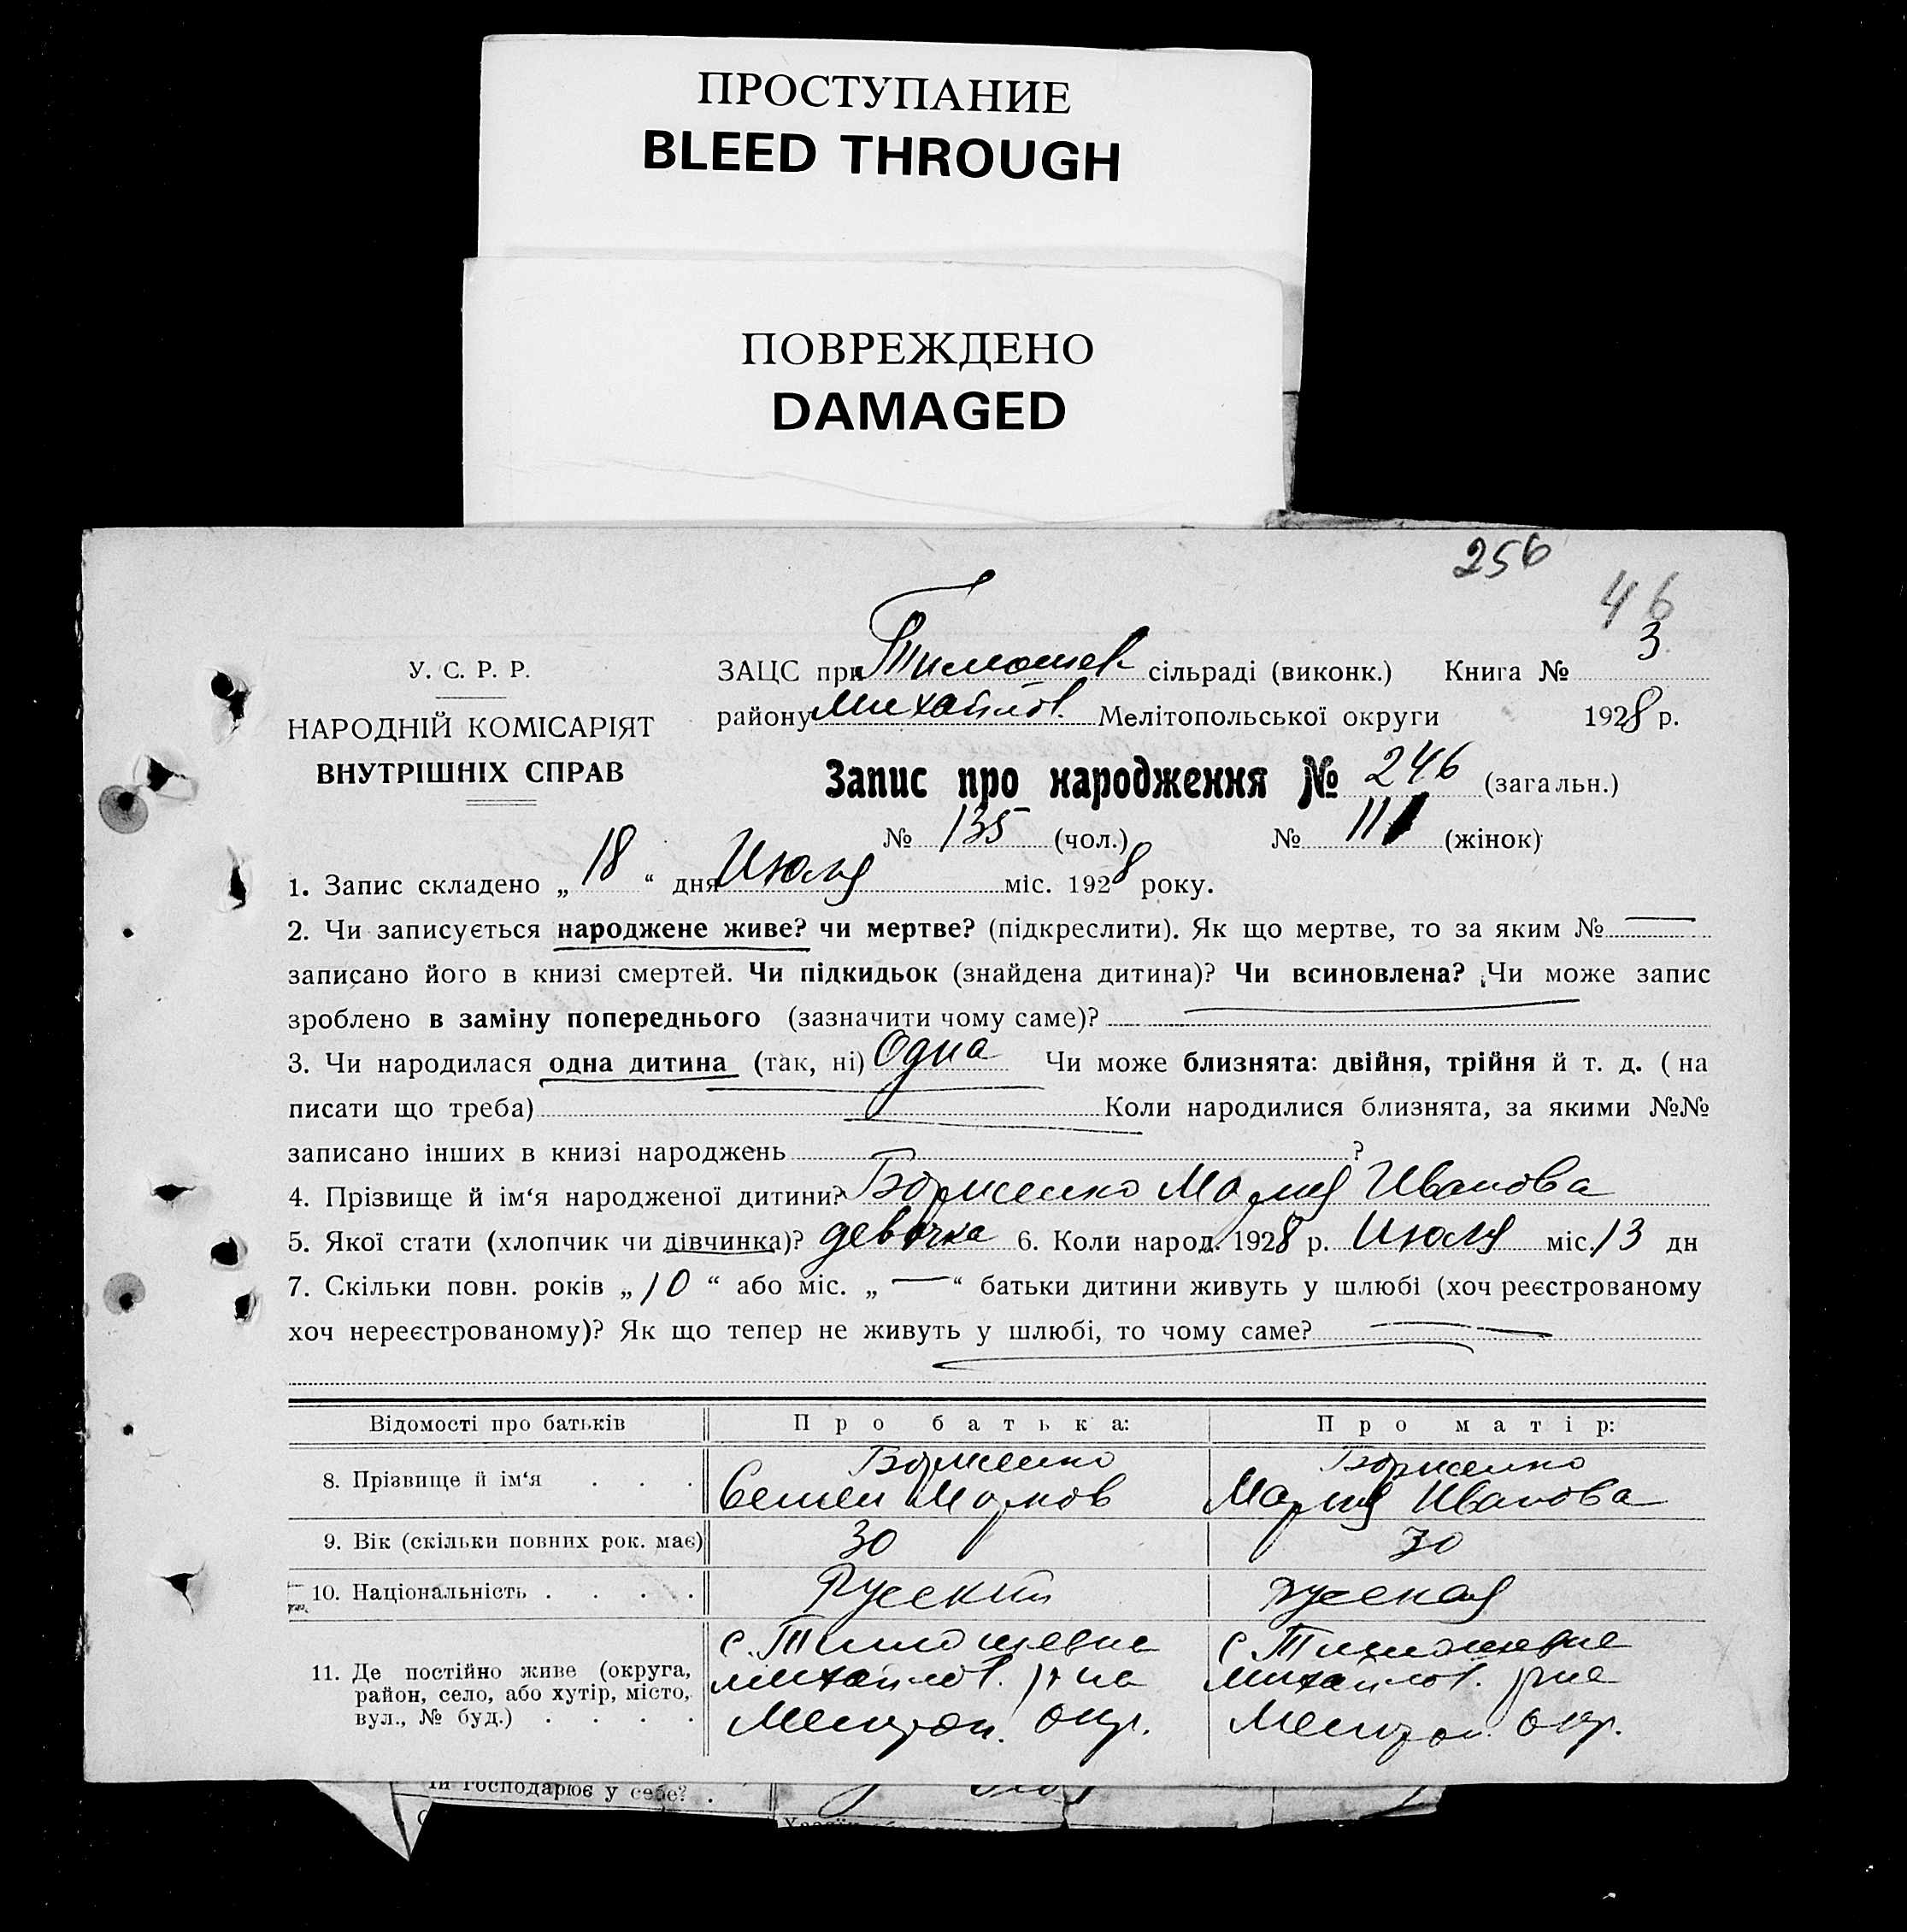 ПРОСТУПАНИЕ
BLEED THROUGH
ПОВРЕЖДЕНО
DAMAGED
256
46
У. С. Р. Р.
НАРОДНІЙ КОМІСАРІЯТ
ВНУТРІШНІХ СПРАВ
ЗАЦС при Тимошев сільраді (виконк.) Книга № 3
району Михайлов. Мелітопольської округи 1928 р.
Запис про народження № 246 (загальн.)
№ 135 (чол.) № 111 (жінок)
1. Запис складено „ 18 “ дня Июля міс. 1928 року.
2. Чи записується народжене живе? чи мертве? (підкреслити). Як що мертве, то за яким № —
записано його в книзі смертей. Чи підкидьок (знайдена дитина)? Чи всиновлена? Чи може запис
зроблено в заміну попереднього (зазначити чому саме)?
3. Чи народилася одна дитина (так, ні) Одна Чи може близнята: двійня, трійня й т. д. ( на
писати що треба) Коли народилися близнята, за якими №№
записано інших в книзі народжень ?
4. Прізвище й ім‘я народженої дитини? Борисенко Мария Иванова
5. Якої стати (хлопчик чи дівчинка)? девочка 6. Коли народ. 1928 р. Июля міс. 13 дн
7. Скільки повн. років „ 10 “ або міс. „ — “ батьки дитини живуть у шлюбі (хоч реєстрованому
хоч нереєстрованому)? Як що тепер не живуть у шлюбі, то чому саме? —
Відомості про батьків Про батька: Про матір:
8. Прізвище й ім‘я . . . Борисенко Борисенко
Семен Марков Мария Иванова
9. Вік (скільки повних рок. має) 30 30
10. Національність . . . . Русский русская
11. Де постійно живе (округа, с. Тимошевке с. Тимошевке
район, село, або хутір, місто, михайлов. р-на михайлов. рне
вул., № буд.) . . . . Мелитоп. окр. Мелитоп. окр.
й господарює у себе? .